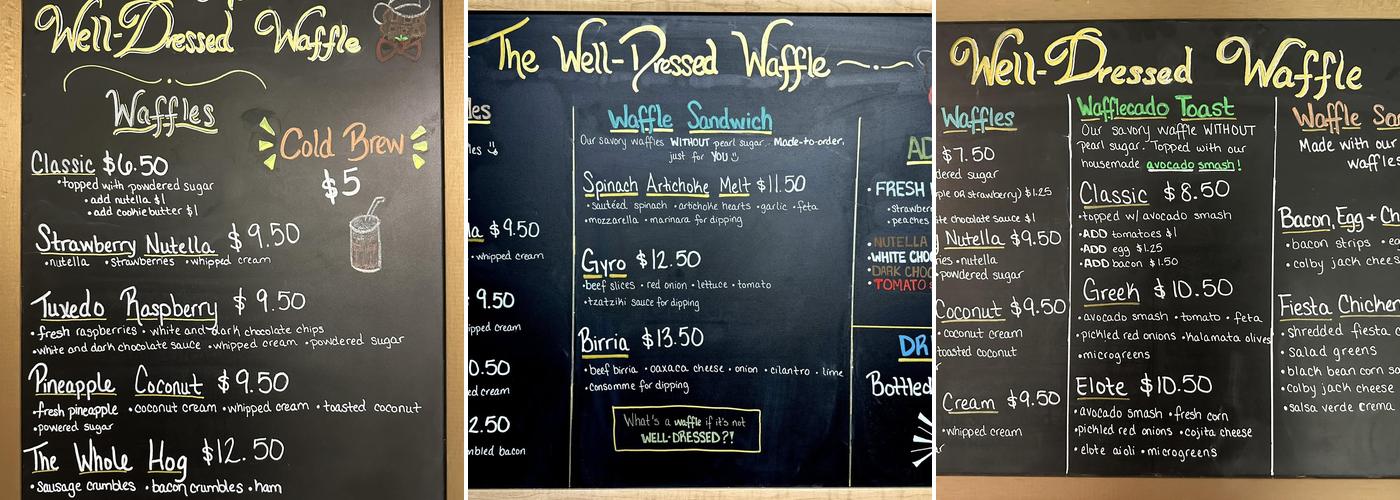 Well-Dressed Waffle
Waffles
Cold Brew
$5
Classic $6.50
•topped with powdered sugar
•add nutella $1
•add cookie butter $1
Strawberry Nutella $9.50
•nutella •strawberries •whipped cream
Tuxedo Raspberry $9.50
•fresh raspberries •white and dark chocolate chips
•white and dark chocolate sauce •whipped cream •powdered sugar
Pineapple Coconut $9.50
•fresh pineapple •coconut cream •whipped cream •toasted coconut
•powdered sugar
The Whole Hog $12.50
•sausage crumbles •bacon crumbles •ham
The Well-Dressed Waffle
les
les
la $9.50
•whipped cream
9.50
ipped cream
0.50
ed cream
2.50
mbled bacon
Waffle Sandwich
Our savory waffles WITHOUT pearl sugar. Made-to-order,
just for YOU
Spinach Artichoke Melt $11.50
•sautéed spinach •artichoke hearts •garlic •feta
•mozzarella •marinara for dipping
Gyro $12.50
•beef slices •red onion •lettuce •tomato
•tzatziki sauce for dipping
Birria $13.50
•beef birria •oaxaca cheese •onion •cilantro •lime
•consomme for dipping
What's a waffle if it's not
WELL-DRESSED?!
AD
•FRESH
•Strawber
•peaches
•NUTELLA
•WHITE CHO
•DARK CHOC
•TOMATO
DR
Bottled
Well-Dressed Waffle
Waffles
$7.50
dered sugar
ple OR strawberry) $1.25
te chocolate sauce $1
Nutella $9.50
ies •nutella
•powdered sugar
Coconut $9.50
•coconut cream
toasted coconut
Cream $9.50
•whipped cream
Wafflecado Toast
Our savory waffle WITHOUT
pearl sugar. Topped with our
housemade avocado smash!
Classic $8.50
•topped w/ avocado smash
•ADD tomatoes $1
•ADD egg $1.25
•ADD bacon $1.50
Greek $10.50
•avocado smash •tomato •feta
•pickled red onions •kalamata olives
•microgreens
Elote $10.50
•avocado smash •fresh corn
•pickled red onions •cojita cheese
•elote aioli •microgreens
Waffle San
Made with our
waffles
Bacon, Egg + Ch
•bacon strips •eg
•colby jack chees
Fiesta Chicken
•shredded fiesta c
•salad greens
•black bean corn sa
•colby jack cheese
•salsa verde crema